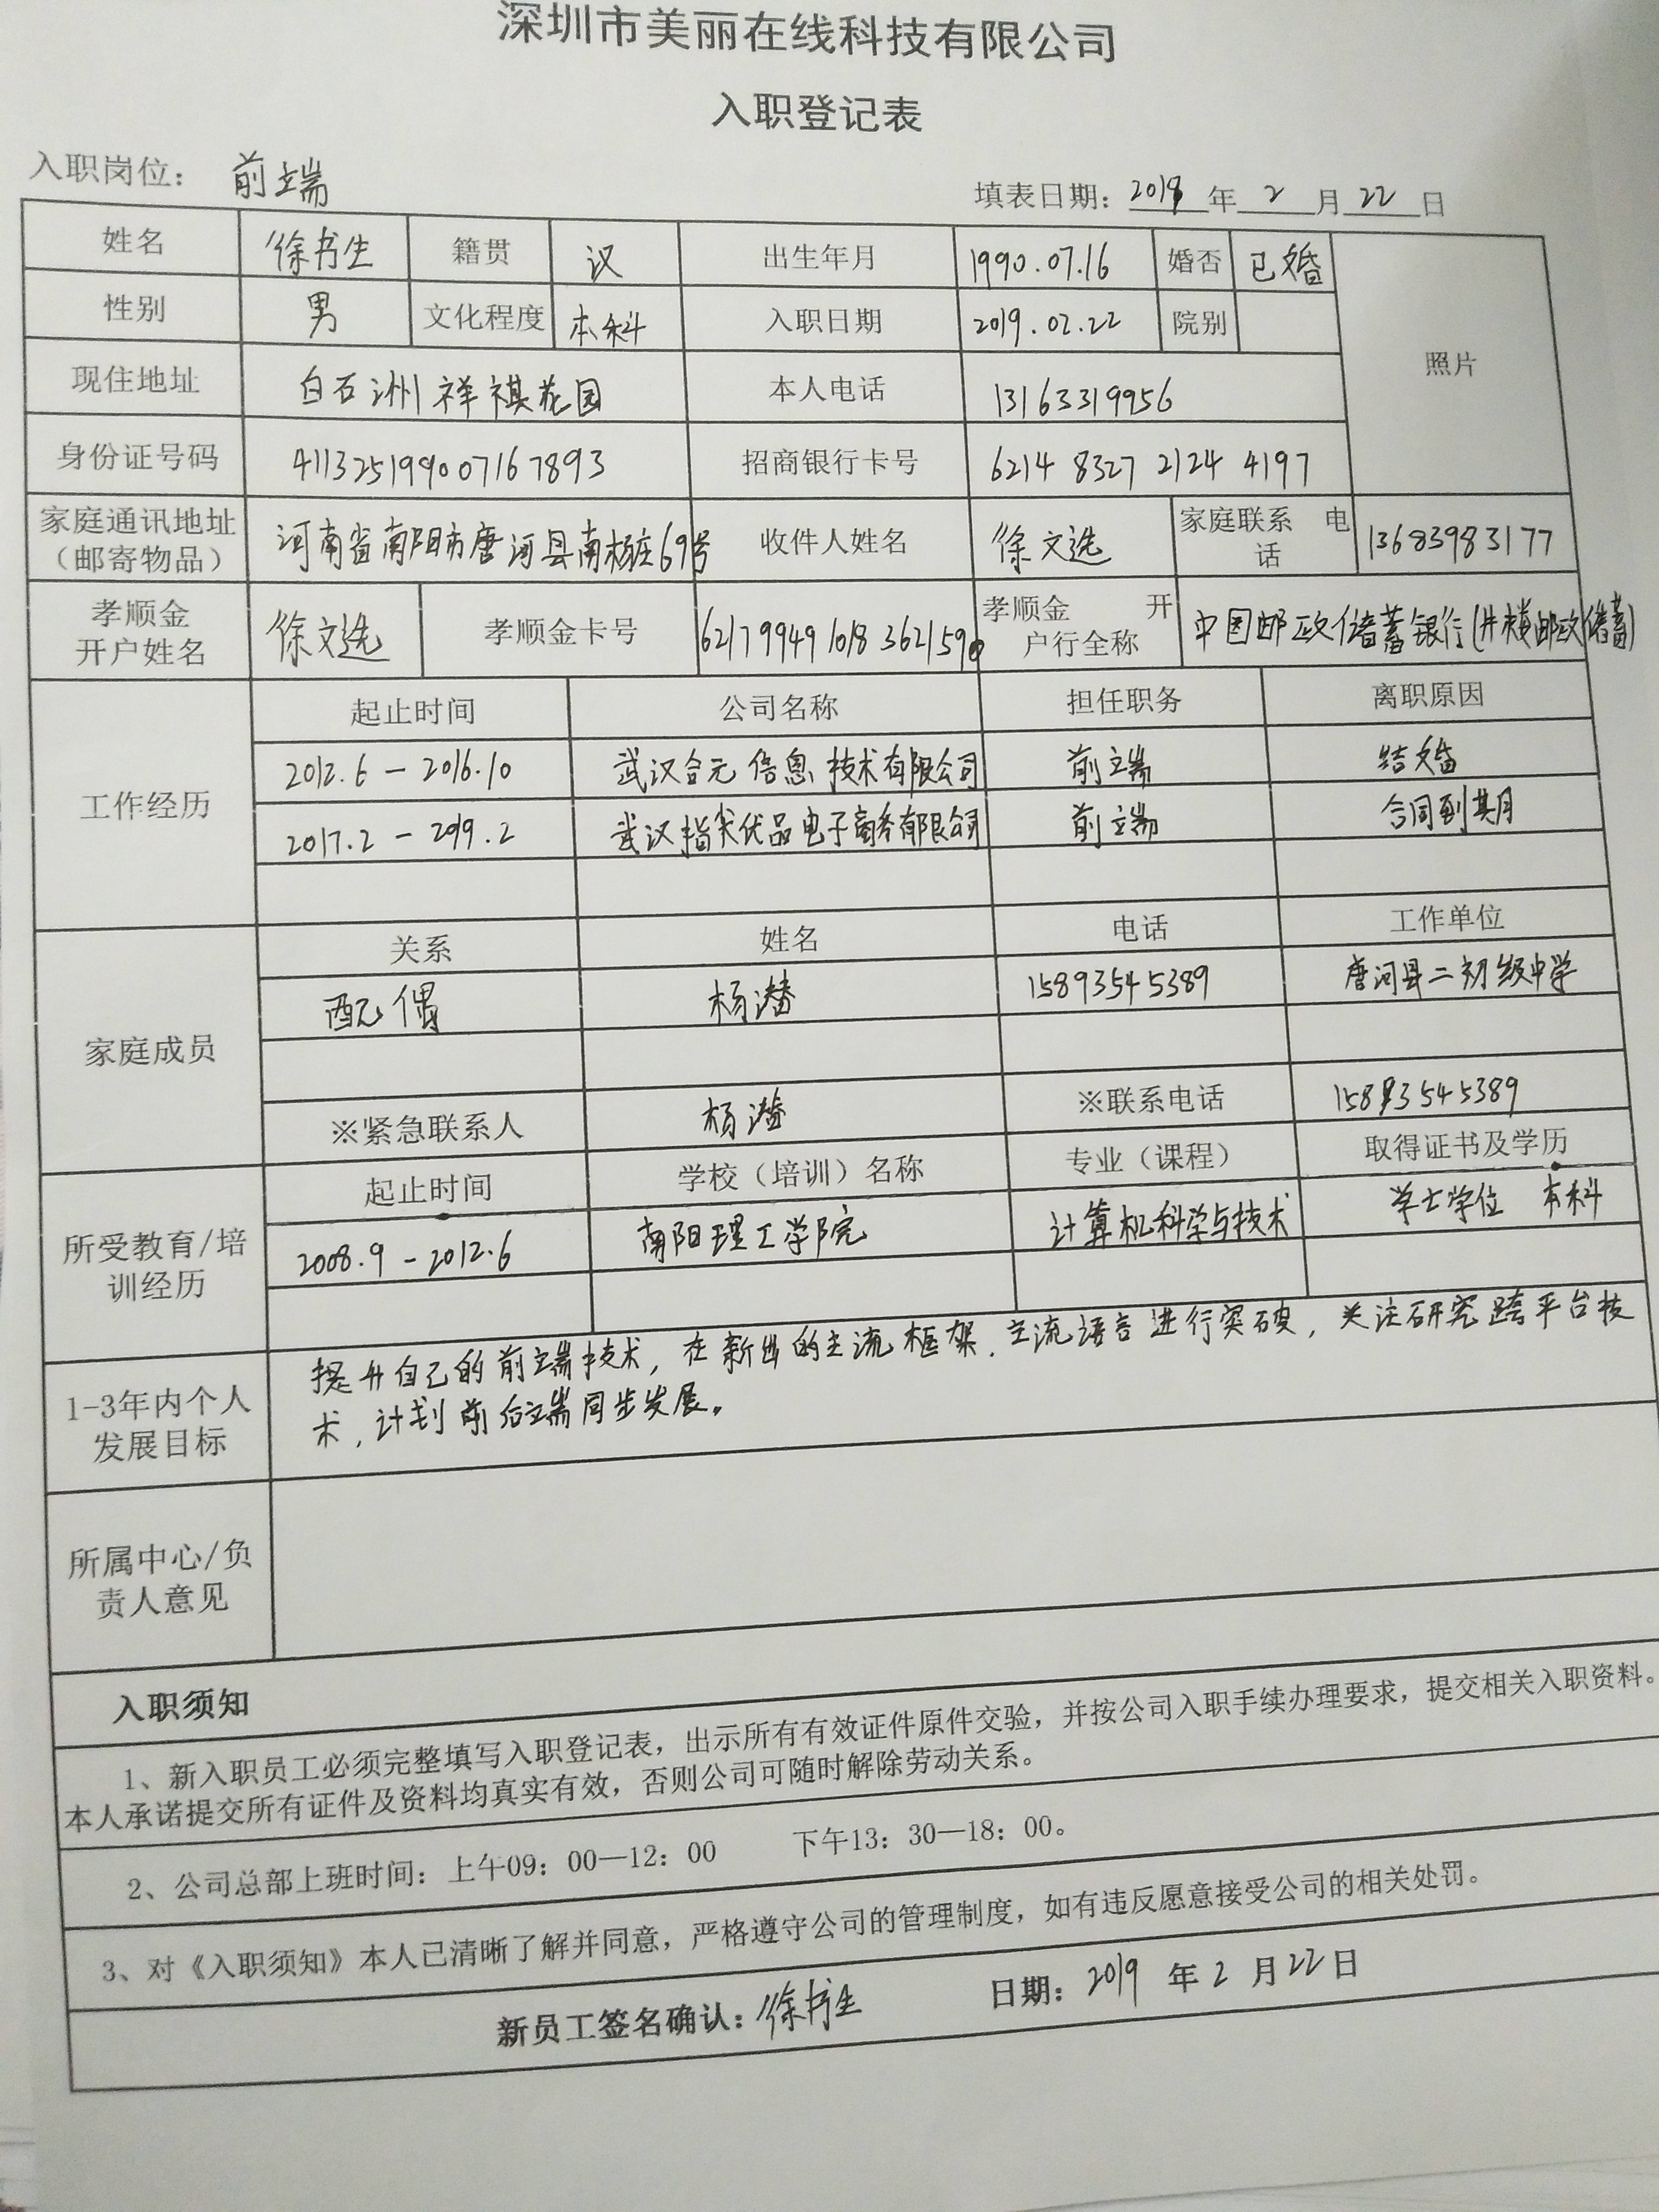 深圳市美丽在线科技有限公司
入职登记表
入职岗位： 前端
填表日期： 2019 年 2 月 22 日
姓名 徐书生 籍贯 汉 出生年月 1990.07.16 婚否 已婚
性别 男 文化程度 本科 入职日期 2019.02.22 院别
照片
现住地址 白石洲祥祺花园 本人电话 13163319956
身份证号码 411325199007167893 招商银行卡号 6214 8327 2124 4197
家庭通讯地址（邮寄物品） 河南省南阳市唐河县南杨庄69号 收件人姓名 徐文选 家庭联系 电话 13683983177
孝顺金开户姓名 徐文选 孝顺金卡号 孝顺金 开户行全称 中国邮政储蓄银行
工作经历
起止时间 公司名称 担任职务 离职原因
2012.6 - 2016.10 武汉合元信息技术有限公司 前端 结婚
2017.2 - 2019.2 武汉指尖优品电子商务有限公司 前端 合同到期
家庭成员
关系 姓名 电话 工作单位
配偶 杨 15893545389 唐河县二初级中学
※紧急联系人 杨 ※联系电话 15893545389
所受教育/培训经历
起止时间 学校（培训）名称 专业（课程） 取得证书及学历
2008.9 - 2012.6 南阳理工学院 计算机科学与技术 学士学位 本科
1-3年内个人发展目标
提升自己的前端技术，在新出的主流框架、主流语言进行突破，关注研究跨平台技
术，计划前后端同步发展。
所属中心/负责人意见
入职须知
1、新入职员工必须完整填写入职登记表，出示所有有效证件原件交验，并按公司入职手续办理要求，提交相关入职资料。
本人承诺提交所有证件及资料均真实有效，否则公司可随时解除劳动关系。
2、公司总部上班时间：上午09：00—12：00 下午13：30—18：00。
3、对《入职须知》本人已清晰了解并同意，严格遵守公司的管理制度，如有违反愿意接受公司的相关处罚。
新员工签名确认：徐书生 日期：2019 年 2 月 22 日